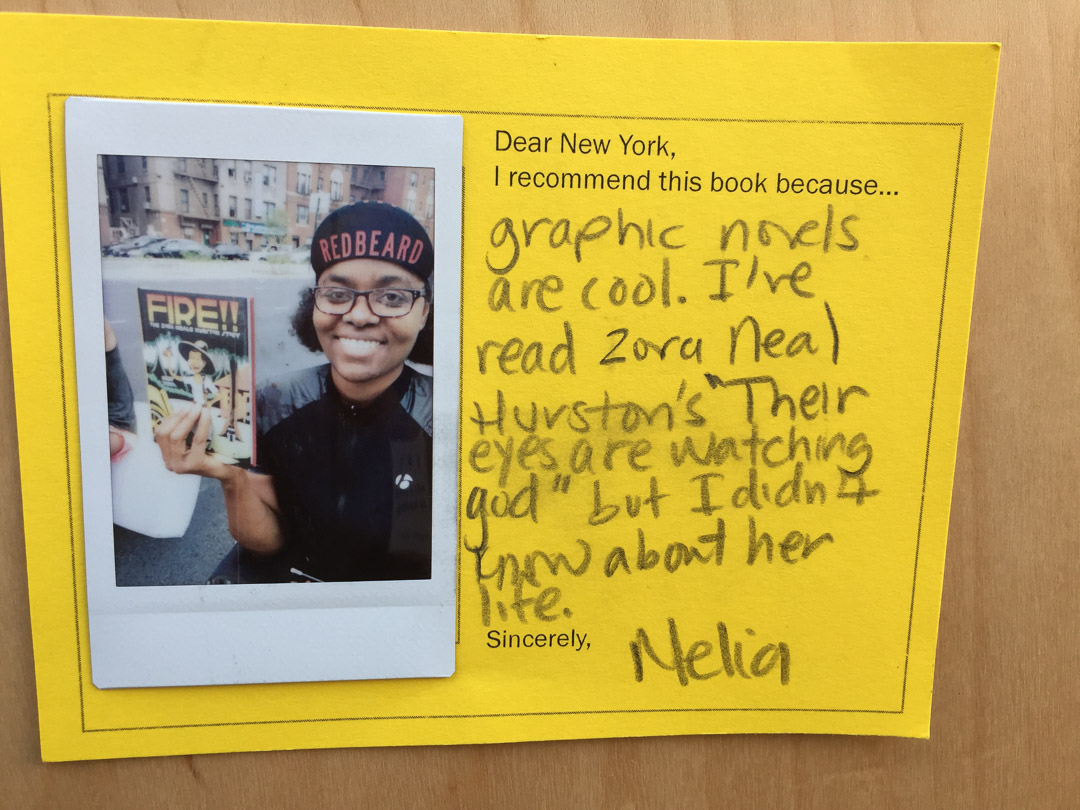 REDBEARD
FIRE!!
THE ZORA NEALE HURSTON STORY
Dear New York,
I recommend this book because...
graphic novels
are cool. I've
read Zora Neal
Hurston's "Their
eyes are watching
god" but I didn't
know about her
life.
Sincerely,
Nelia